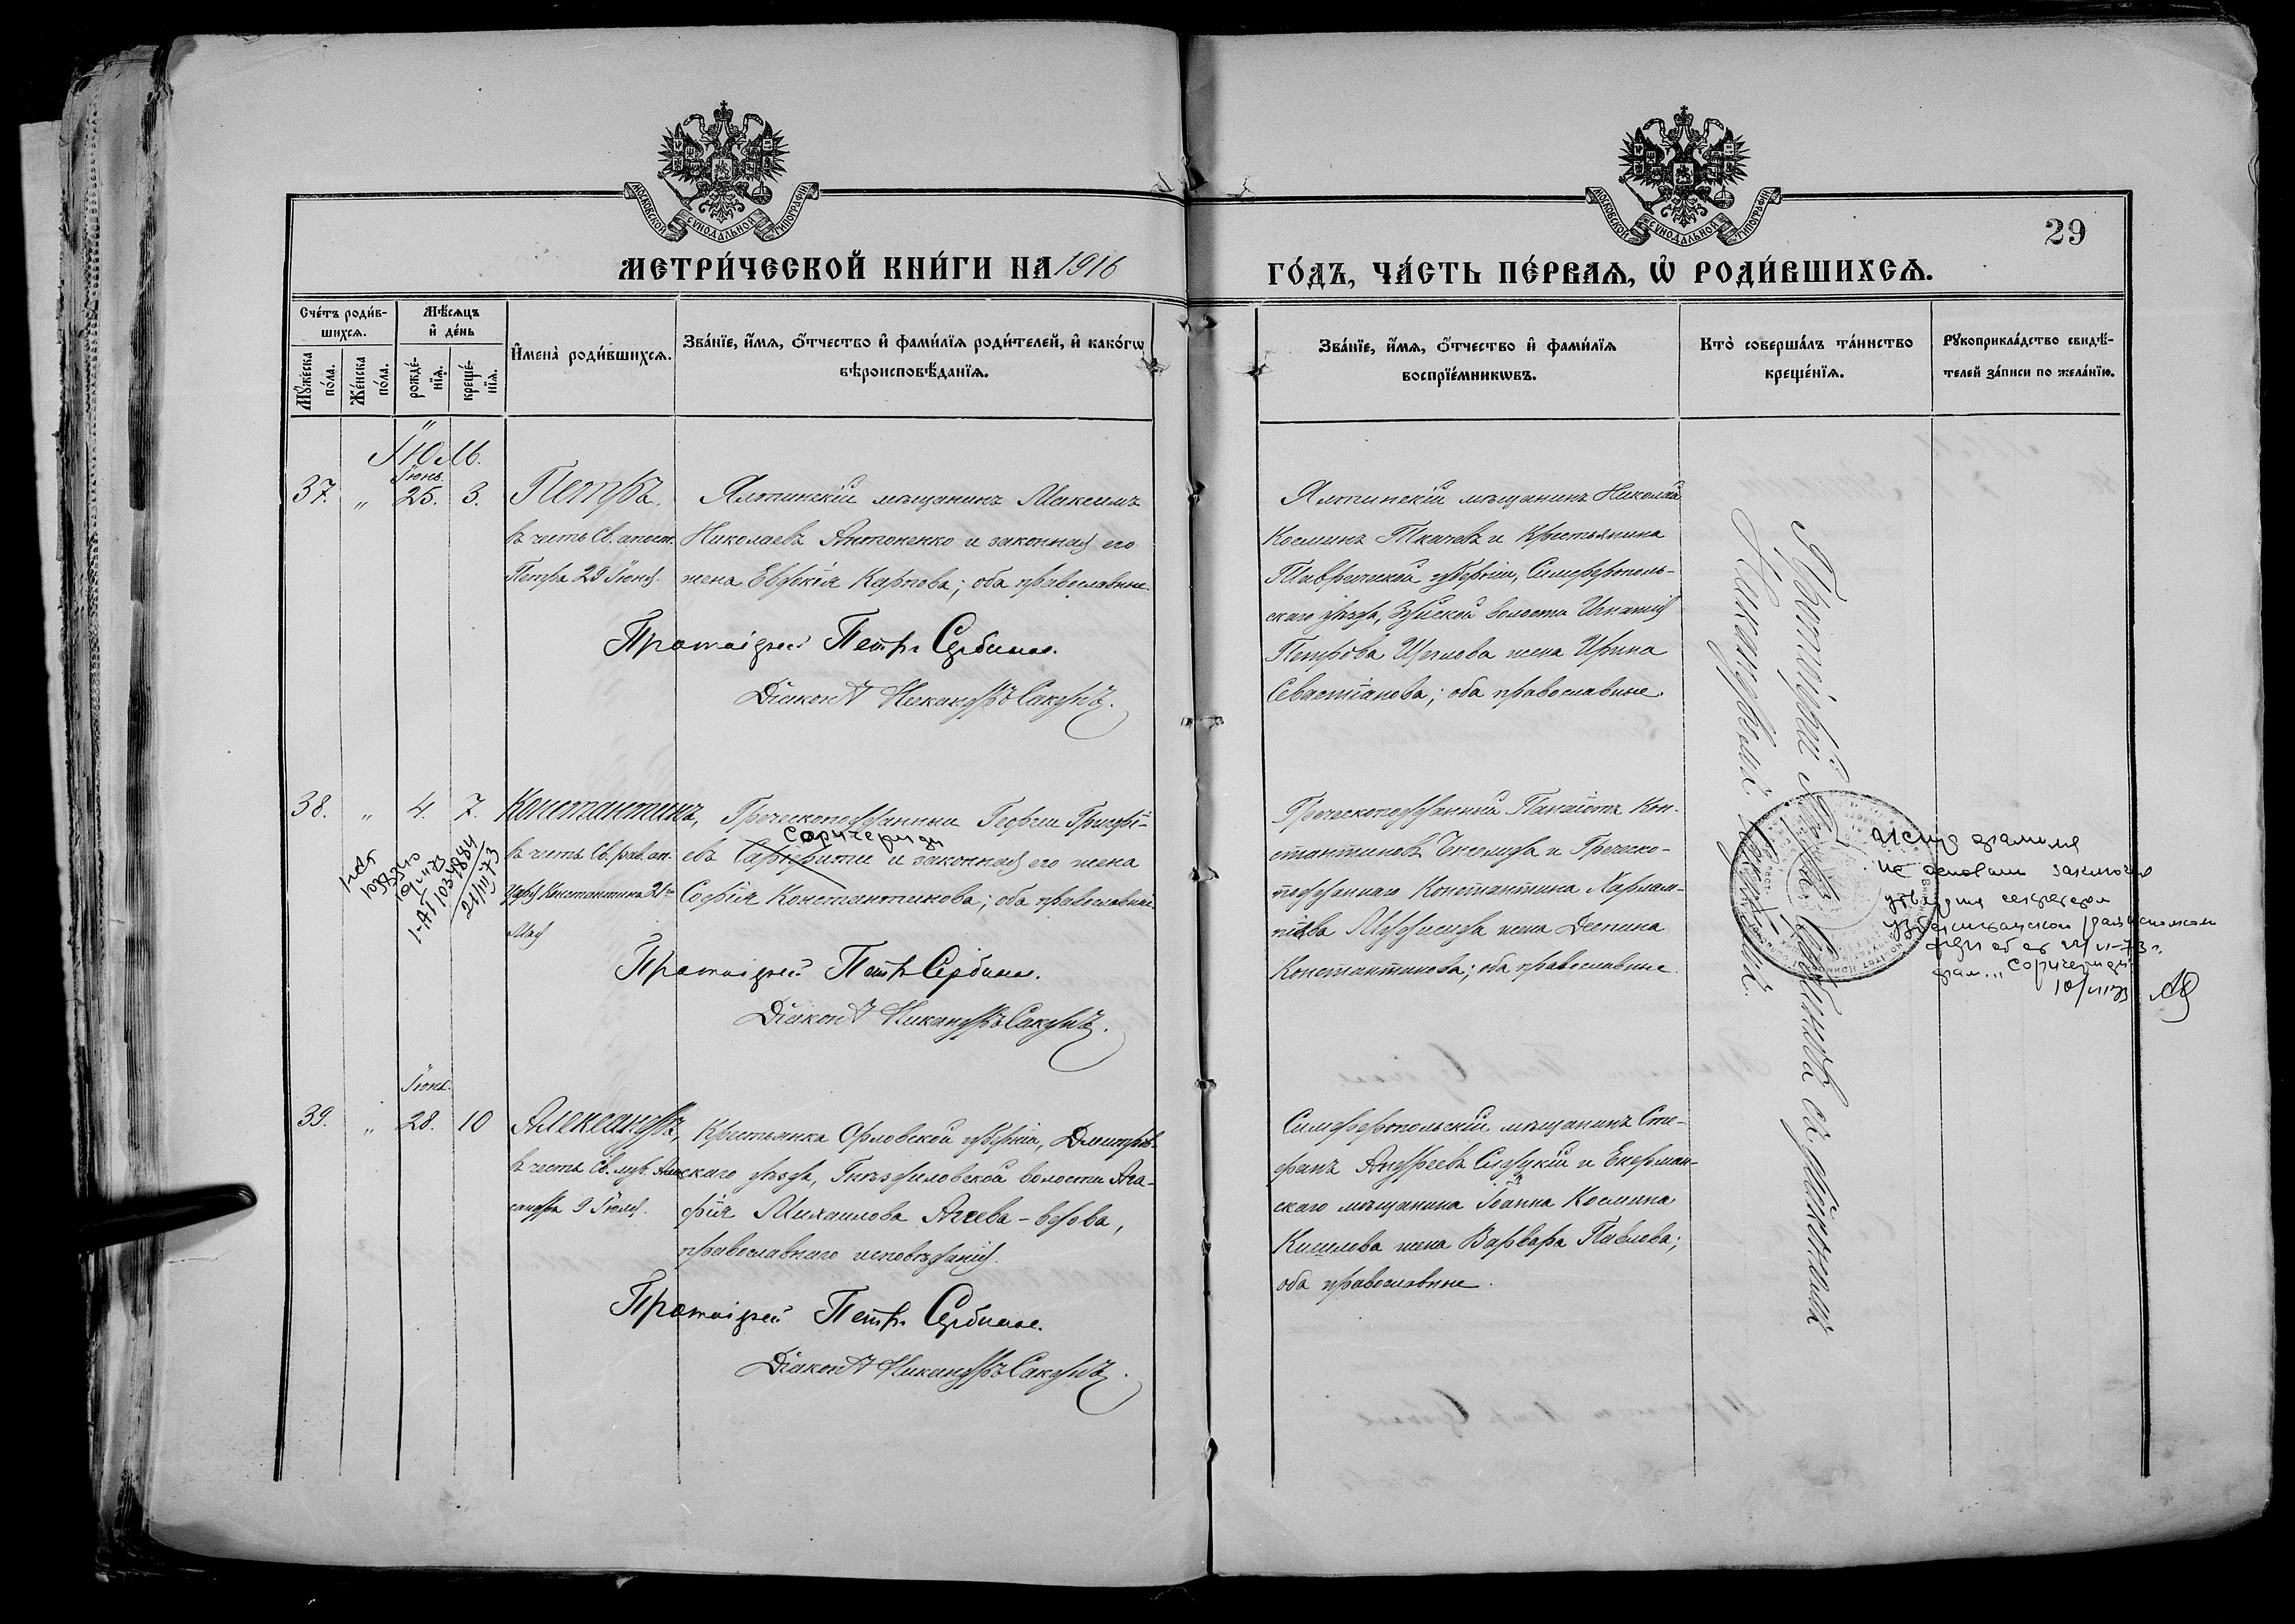 МОСКОВСКОЙ СѴНОДАЛЬНОЙ ТИПОГРАФІИ
МОСКОВСКОЙ СѴНОДАЛЬНОЙ ТИПОГРАФІИ
29
МЕТРИ́ЧЕСКОЙ КНИ́ГИ НА 1916
ГО́ДЪ, ЧА́СТЬ ПЕ́РВАѦ, Ѡ҆ РОДИ́ВШИХСѦ.
Сче́тъ роди́в-
шихсѧ.
Мꙋ́жеска
по́ла.
Же́нска
по́ла.
Мѣ́сѧцъ
и҆ де́нь
рожде́-
нїѧ.
креще́-
нїѧ.
И҆мена̀ роди́вшихсѧ.
Зва́нїе, и҆́мѧ, ѻ҆́тчество и҆ фами́лїѧ роди́телей, и҆ како́гѡ
вѣроисповѣ́данїѧ.
Зва́нїе, и҆́мѧ, ѻ҆́тчество и҆ фами́лїѧ
воспрїе́мникѡвъ.
Кто̀ соверша́лъ та́инство
креще́нїѧ.
Рꙋкоприкла́дство свидѣ́-
телей за́писи по жела́нїю.
Іюль.
Іюнь.
37. " 25. 3. Петръ,
въ честь Св. апост.
Петра 29 Іюня.
Ялтинскій мѣщанинъ Максимъ
Николаевъ Антоненко и законная его
жена Евдокія Карпова; оба православные
Протоіерей Петръ Сербиновъ.
Діаконъ Никандръ Сакунъ.
Ялтинскій мѣщанинъ Николай
Косминъ Ткачевъ и Крестьянина
Таврической губерніи, Симферополь-
скаго уѣзда, Зуйской волости Игнатія
Петрова Щеглова жена Ирина
Севастіанова; оба православные.
38. " 4. 7. Константинъ,
въ честь Св. рав. ап.
Царя Константина 21го
Мая
Греческоподданный Георгій
Соричериди
евъ и законная его жена
Софія Константинова; оба православные.
1-АП 1034884
21/III 73
Протоіерей Петръ Сербиновъ.
Діаконъ Никандръ Сакунъ.
Греческоподданный Панаіотъ Кон-
стантиновъ и Греческо-
подданнаго Константина Харлам-
піева жена Деспина
Константинова; оба православные
фамилия
на основании
фам. "Соричериди"
Іюнь.
39. " 28. 10 Александръ,
въ честь Св. муч. Алек-
сандра 9 Іюля.
Крестьянка Орловской губерніи, Дмитров-
скаго уѣзда, Гнѣздиловской волости Ага-
фія Михаилова Агѣева-Ведова,
православнаго исповѣданія.
Протоіерей Петръ Сербиновъ.
Діаконъ Никандръ Сакунъ.
Симферопольскій мѣщанинъ Сте-
фанъ Андреевъ и
скаго мѣщанина Іоанна Космина
Киселова жена Варвара Павлова;
оба православные.
Протоіерей Петръ Сербиновъ съ діакономъ
Никандромъ Сакуномъ.